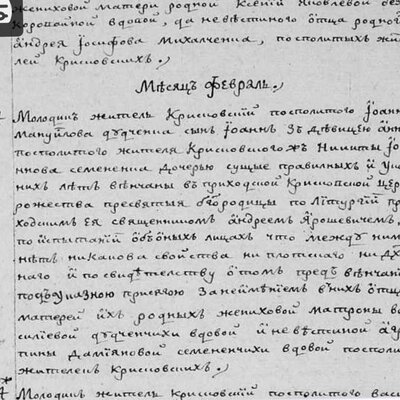 жениховой матери родной Ксении Яковлевой
вдовой, да невѣстиного отца родного
андрея Іосифова Михалченка, посполитых жи
лей Крисковских.
Мѣсяцъ Февраль.
Молодикъ житель Крисковскій посполитого Іоанн
Мануйлова дудченка сынъ Іоаннъ зъ дѣвицею анн
посполитого жителя Крисковского жъ Никиты Іо
аннова семененка дочерью сущые правилныхъ и
нихъ лѣтъ вѣнчаны въ приходской Крисковской цер
рожества пресвятыя богородицы по літургіи пр
ходскимъ ея священникомъ андреемъ Ярошевичемъ,
по испытаніи обѣѡныхъ лицахъ что между ними
нѣтъ никакова свойства ни плотского ни дх
наго и по свидѣтелству о томъ предъ вѣнчан
подъ указною присягою за неимѣніемъ в нихъ отц
матерей ихъ родныхъ жениховой матроны ва
силіевой дудченчихи вдовой и невѣстиной
тины даміяновой семененчихи вдовой посполи
жителей Крисковскихъ.
Молодикъ житель Крисковскій посполитого вас